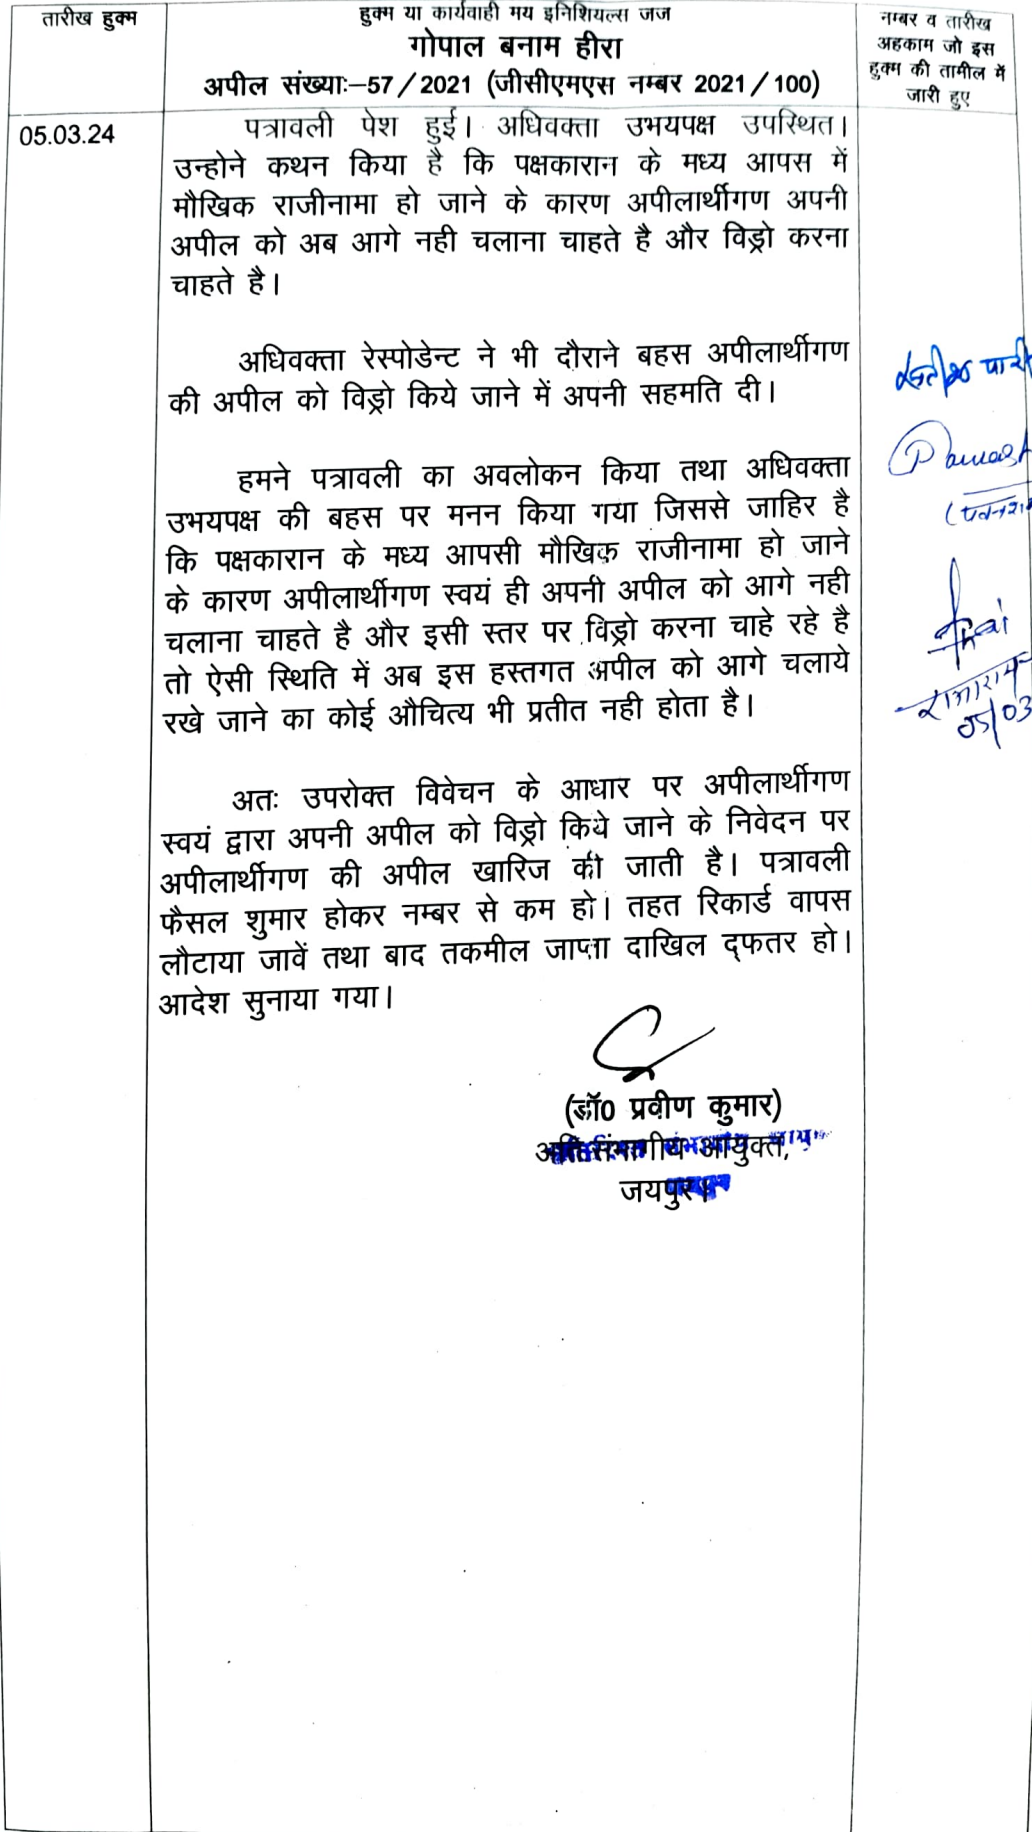 तारीख हुक्म
हुक्म या कार्यवाही मय इनिशियल्स जज
गोपाल बनाम हीरा
अपील संख्याः–57/2021 (जीसीएमएस नम्बर 2021/100)
नम्बर व तारीख
अहकाम जो इस
हुक्म की तामील में
जारी हुए
05.03.24
पत्रावली पेश हुई। अधिवक्ता उभयपक्ष उपस्थित।
उन्होने कथन किया है कि पक्षकारान के मध्य आपस में
मौखिक राजीनामा हो जाने के कारण अपीलार्थीगण अपनी
अपील को अब आगे नही चलाना चाहते है और विड्रो करना
चाहते है।
अधिवक्ता रेस्पोडेन्ट ने भी दौराने बहस अपीलार्थीगण
की अपील को विड्रो किये जाने में अपनी सहमति दी।
हमने पत्रावली का अवलोकन किया तथा अधिवक्ता
उभयपक्ष की बहस पर मनन किया गया जिससे जाहिर है
कि पक्षकारान के मध्य आपसी मौखिक राजीनामा हो जाने
के कारण अपीलार्थीगण स्वयं ही अपनी अपील को आगे नही
चलाना चाहते है और इसी स्तर पर विड्रो करना चाहे रहे है
तो ऐसी स्थिति में अब इस हस्तगत अपील को आगे चलाये
रखे जाने का कोई औचित्य भी प्रतीत नही होता है।
अतः उपरोक्त विवेचन के आधार पर अपीलार्थीगण
स्वयं द्वारा अपनी अपील को विड्रो किये जाने के निवेदन पर
अपीलार्थीगण की अपील खारिज की जाती है। पत्रावली
फैसल शुमार होकर नम्बर से कम हो। तहत रिकार्ड वापस
लौटाया जावें तथा बाद तकमील जाप्ता दाखिल द्फतर हो।
आदेश सुनाया गया।
(डॉ0 प्रवीण कुमार)
अति.संभागीय आयुक्त,
जयपुर।
राजाराम
05/03